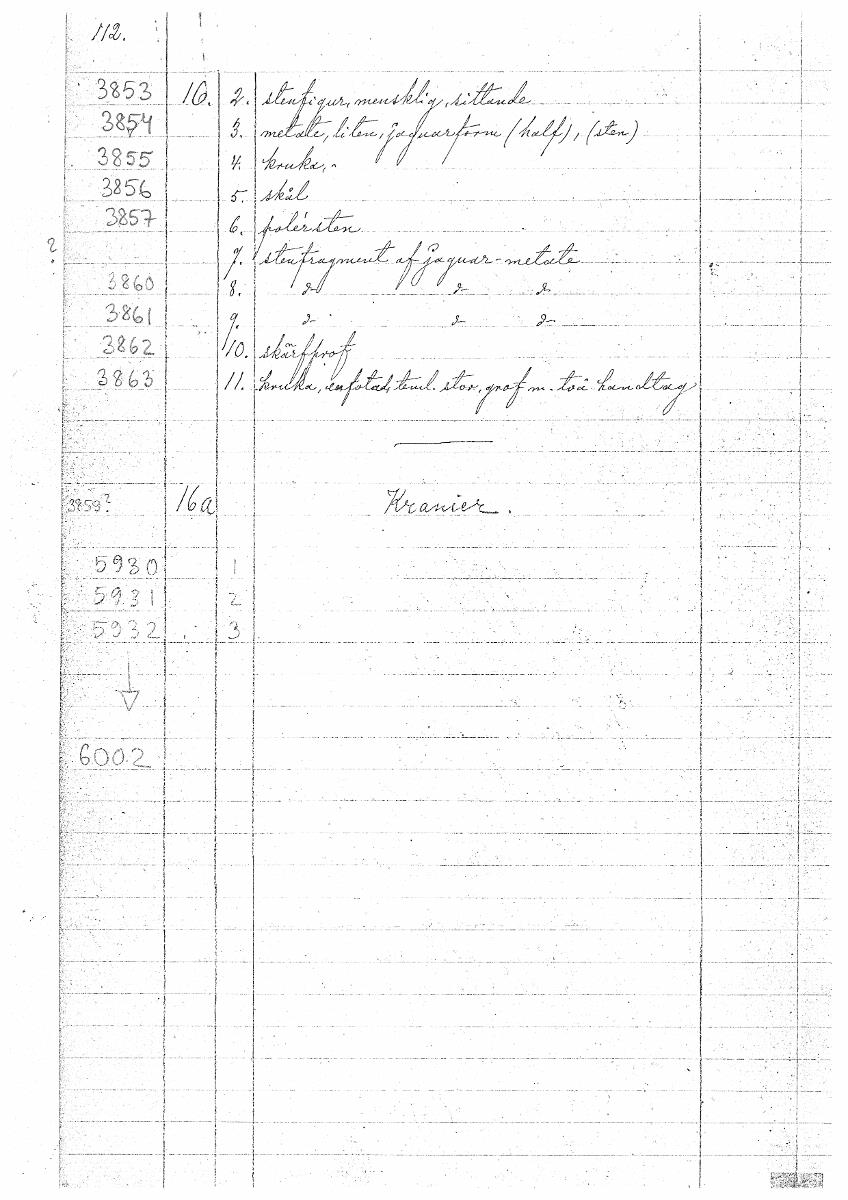 112.
3853 16. 2. stenfigur, mensklig, sittande
3854 3. metate, liten, jaguarform (half), (sten)
3855 4. kruka, -
3856 5. skål
3857 6. polérsten
? 7. stenfragment af jaguar-metate
3860 8. d:o d:o d:o
3861 9. d:o d:o d:o
3862 10. skärfprof
3863 11. kruka, enfotad, teml. stor, grof m. två handtag
3859? 16a Kranier.
5930 1
5931 2
5932 3
6002